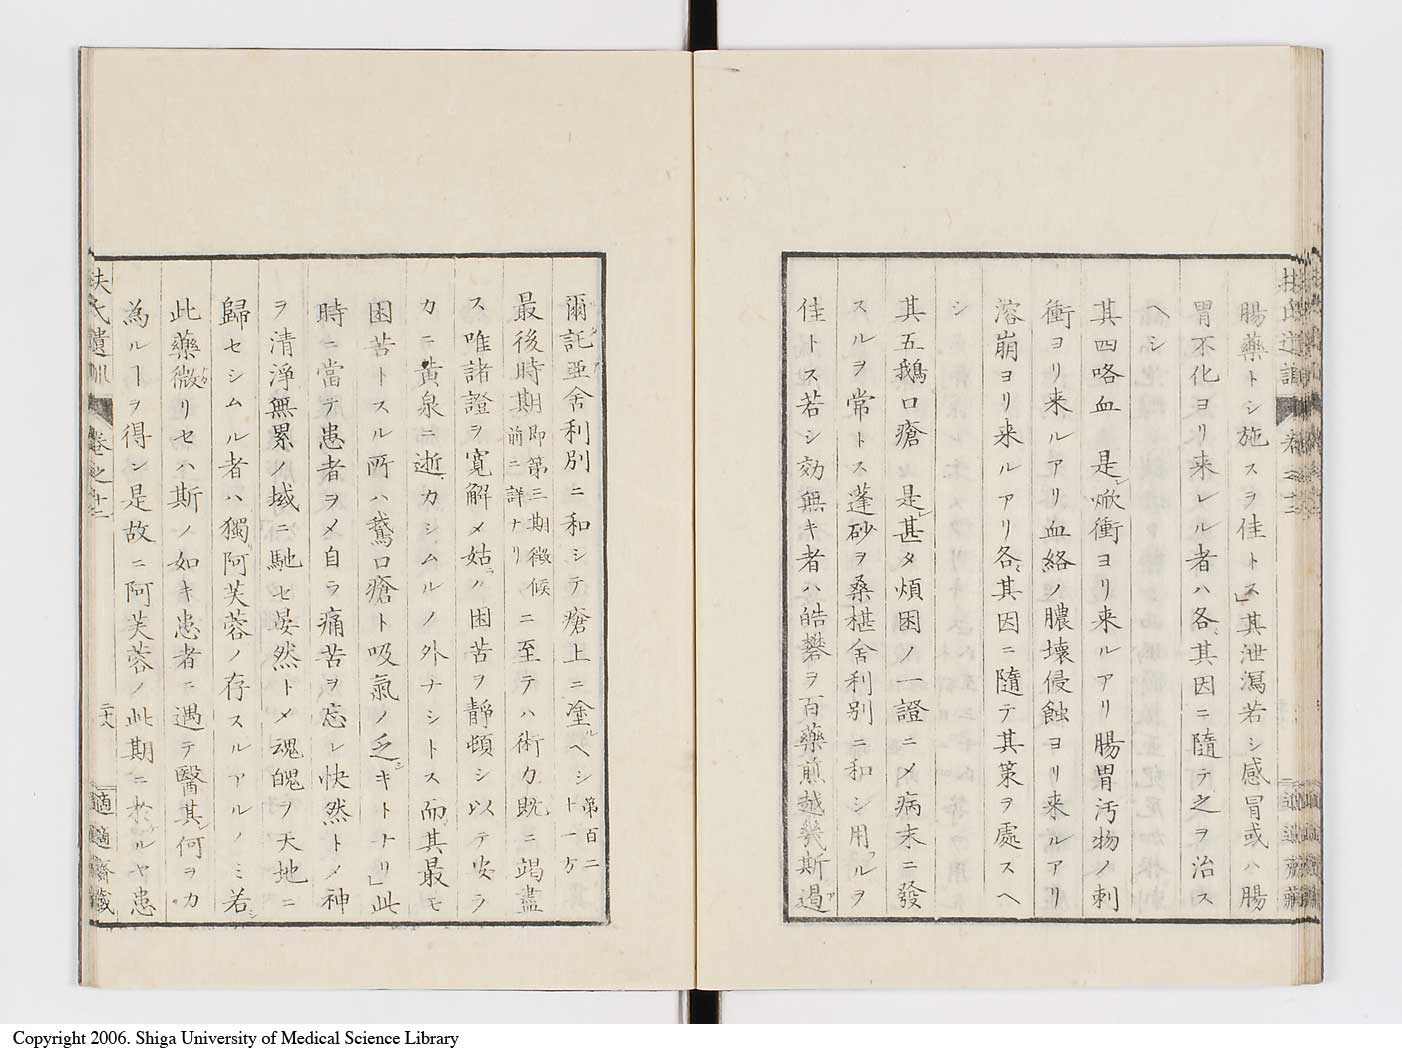 腸藥トシ施スヲ佳トス」其泄瀉若シ感冒或ハ腸
胃不化ヨリ来レル者ハ各其因ニ隨テ之ヲ治ス
ヘシ
其四咯血 是焮衝ヨリ来ルアリ腸胃汚物ノ刺
衝ヨリ来ルアリ血絡ノ膿壊侵蝕ヨリ来ルアリ
溶崩ヨリ来ルアリ各其因ニ隨テ其策ヲ處スヘ
シ
其五鵝口瘡 是甚タ煩困ノ一證ニメ病末ニ發
スルヲ常トス蓬砂ヲ桑椹舍利別ニ和シ用ルヲ
佳トス若シ効無キ者ハ皓礬ヲ百藥煎越幾斯過
爾託亜舍利別ニ和シテ瘡上ニ塗ヘシ第百二十一方
最後時期即第三期徴候前ニ詳ナリニ至テハ術力既ニ竭盡
ス唯諸證ヲ寛解メ姑ノ困苦ヲ靜頓シ以テ安ラ
カニ黄泉ニ逝カシムルノ外ナシトス而其最モ
困苦トスル所ハ鵞口瘡ト吸氣ノ乏キトナリ」此
時ニ當テ患者ヲメ自ラ痛苦ヲ忘レ快然トノ神
ヲ清淨無累ノ域ニ馳セ晏然トメ魂魄ヲ天地ニ
歸セシムル者ハ獨阿芙蓉ノ存スルアルノミ若
此藥微リセハ斯ノ如キ患者ニ遇テ醫其何ヲカ
為ルヿヲ得ン是故ニ阿芙蓉ノ此期ニ於ルヤ患
扶氏遺訓 卷之十二 二十六 適適齋藏
Copyright 2006. Shiga University of Medical Science Library